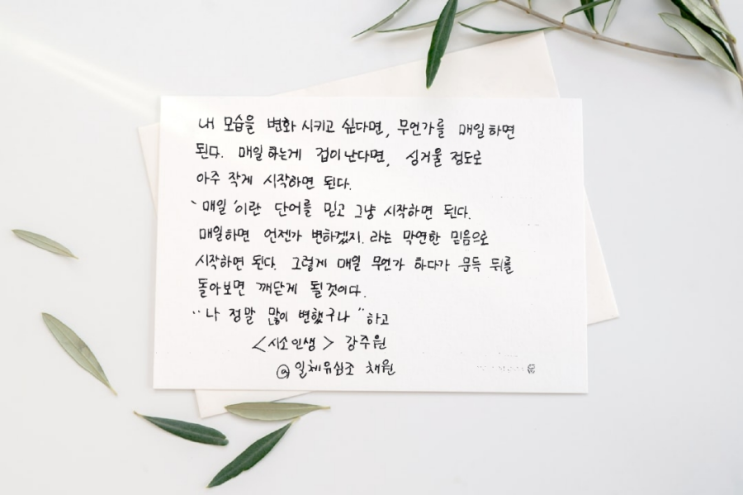 내 모습을 변화 시키고 싶다면, 무언가를 매일 하면
된다. 매일 하는게 겁이 난다면, 싱거울 정도로
아주 작게 시작하면 된다.
'매일'이란 단어를 믿고 그냥 시작하면 된다.
매일하면 언젠가 변하겠지. 라는 막연한 믿음으로
시작하면 된다. 그렇게 매일 무언가 하다가 문득 뒤를
돌아보면 깨닫게 될 것이다.
"나 정말 많이 변했구나" 하고
<시소인생> 강주원
@일체유심조 채원